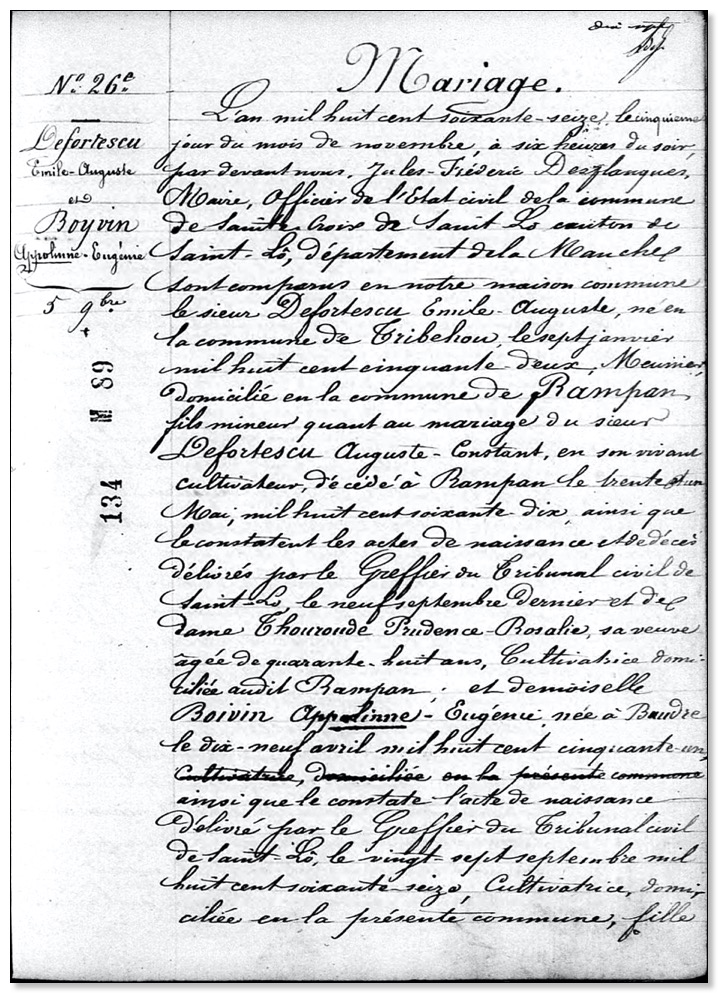 Mariage.
N.º 26.e
Defortescu
Emile-Auguste
et
Boyvin
Appolinne-Eugénie
5 9bre
134 M 89
L'an mil huit cent soixante-seize, le cinquieme
jour du mois de novembre, à six heures du soir,
par devant nous, Jules-Fréderic Desplanques,
Maire, Officier de l'Etat civil de la commune
de Sainte Croix de Saint Lo canton de
Saint-Lô, département de la Manche
sont comparus en notre maison commune
le sieur Defortescu Emile-Auguste, né en
la commune de Tribehou, le sept janvier
mil huit cent cinquante-deux, Meunier,
domiciliée en la commune de Rampan,
fils mineur quant au mariage du sieur
Defortescu Auguste-Constant, en son vivant
cultivateur, décédé à Rampan le trente et un
Mai, mil huit cent soixante dix, ainsi que
le constatent les actes de naissance et de décès
délivrés par le Greffier du Tribunal civil de
Saint-Lo, le neuf septembre dernier et de
dame Thouroude Prudence-Rosalie, sa veuve
âgée de quarante-huit ans, Cultivatrice domi-
ciliée audit Rampan; et demoiselle
Boivin Appolinne-Eugénie, née à Baudre
le dix-neuf avril mil huit cent cinquante-un,
Cultivatrice, domiciliée en la présente commune
ainsi que le constate l'acte de naissance
délivré par le Greffier du Tribunal civil
de Saint-Lô, le vingt-sept septembre mil
huit cent soixante-seize, Cultivatrice, domi-
ciliée en la présente commune, fille